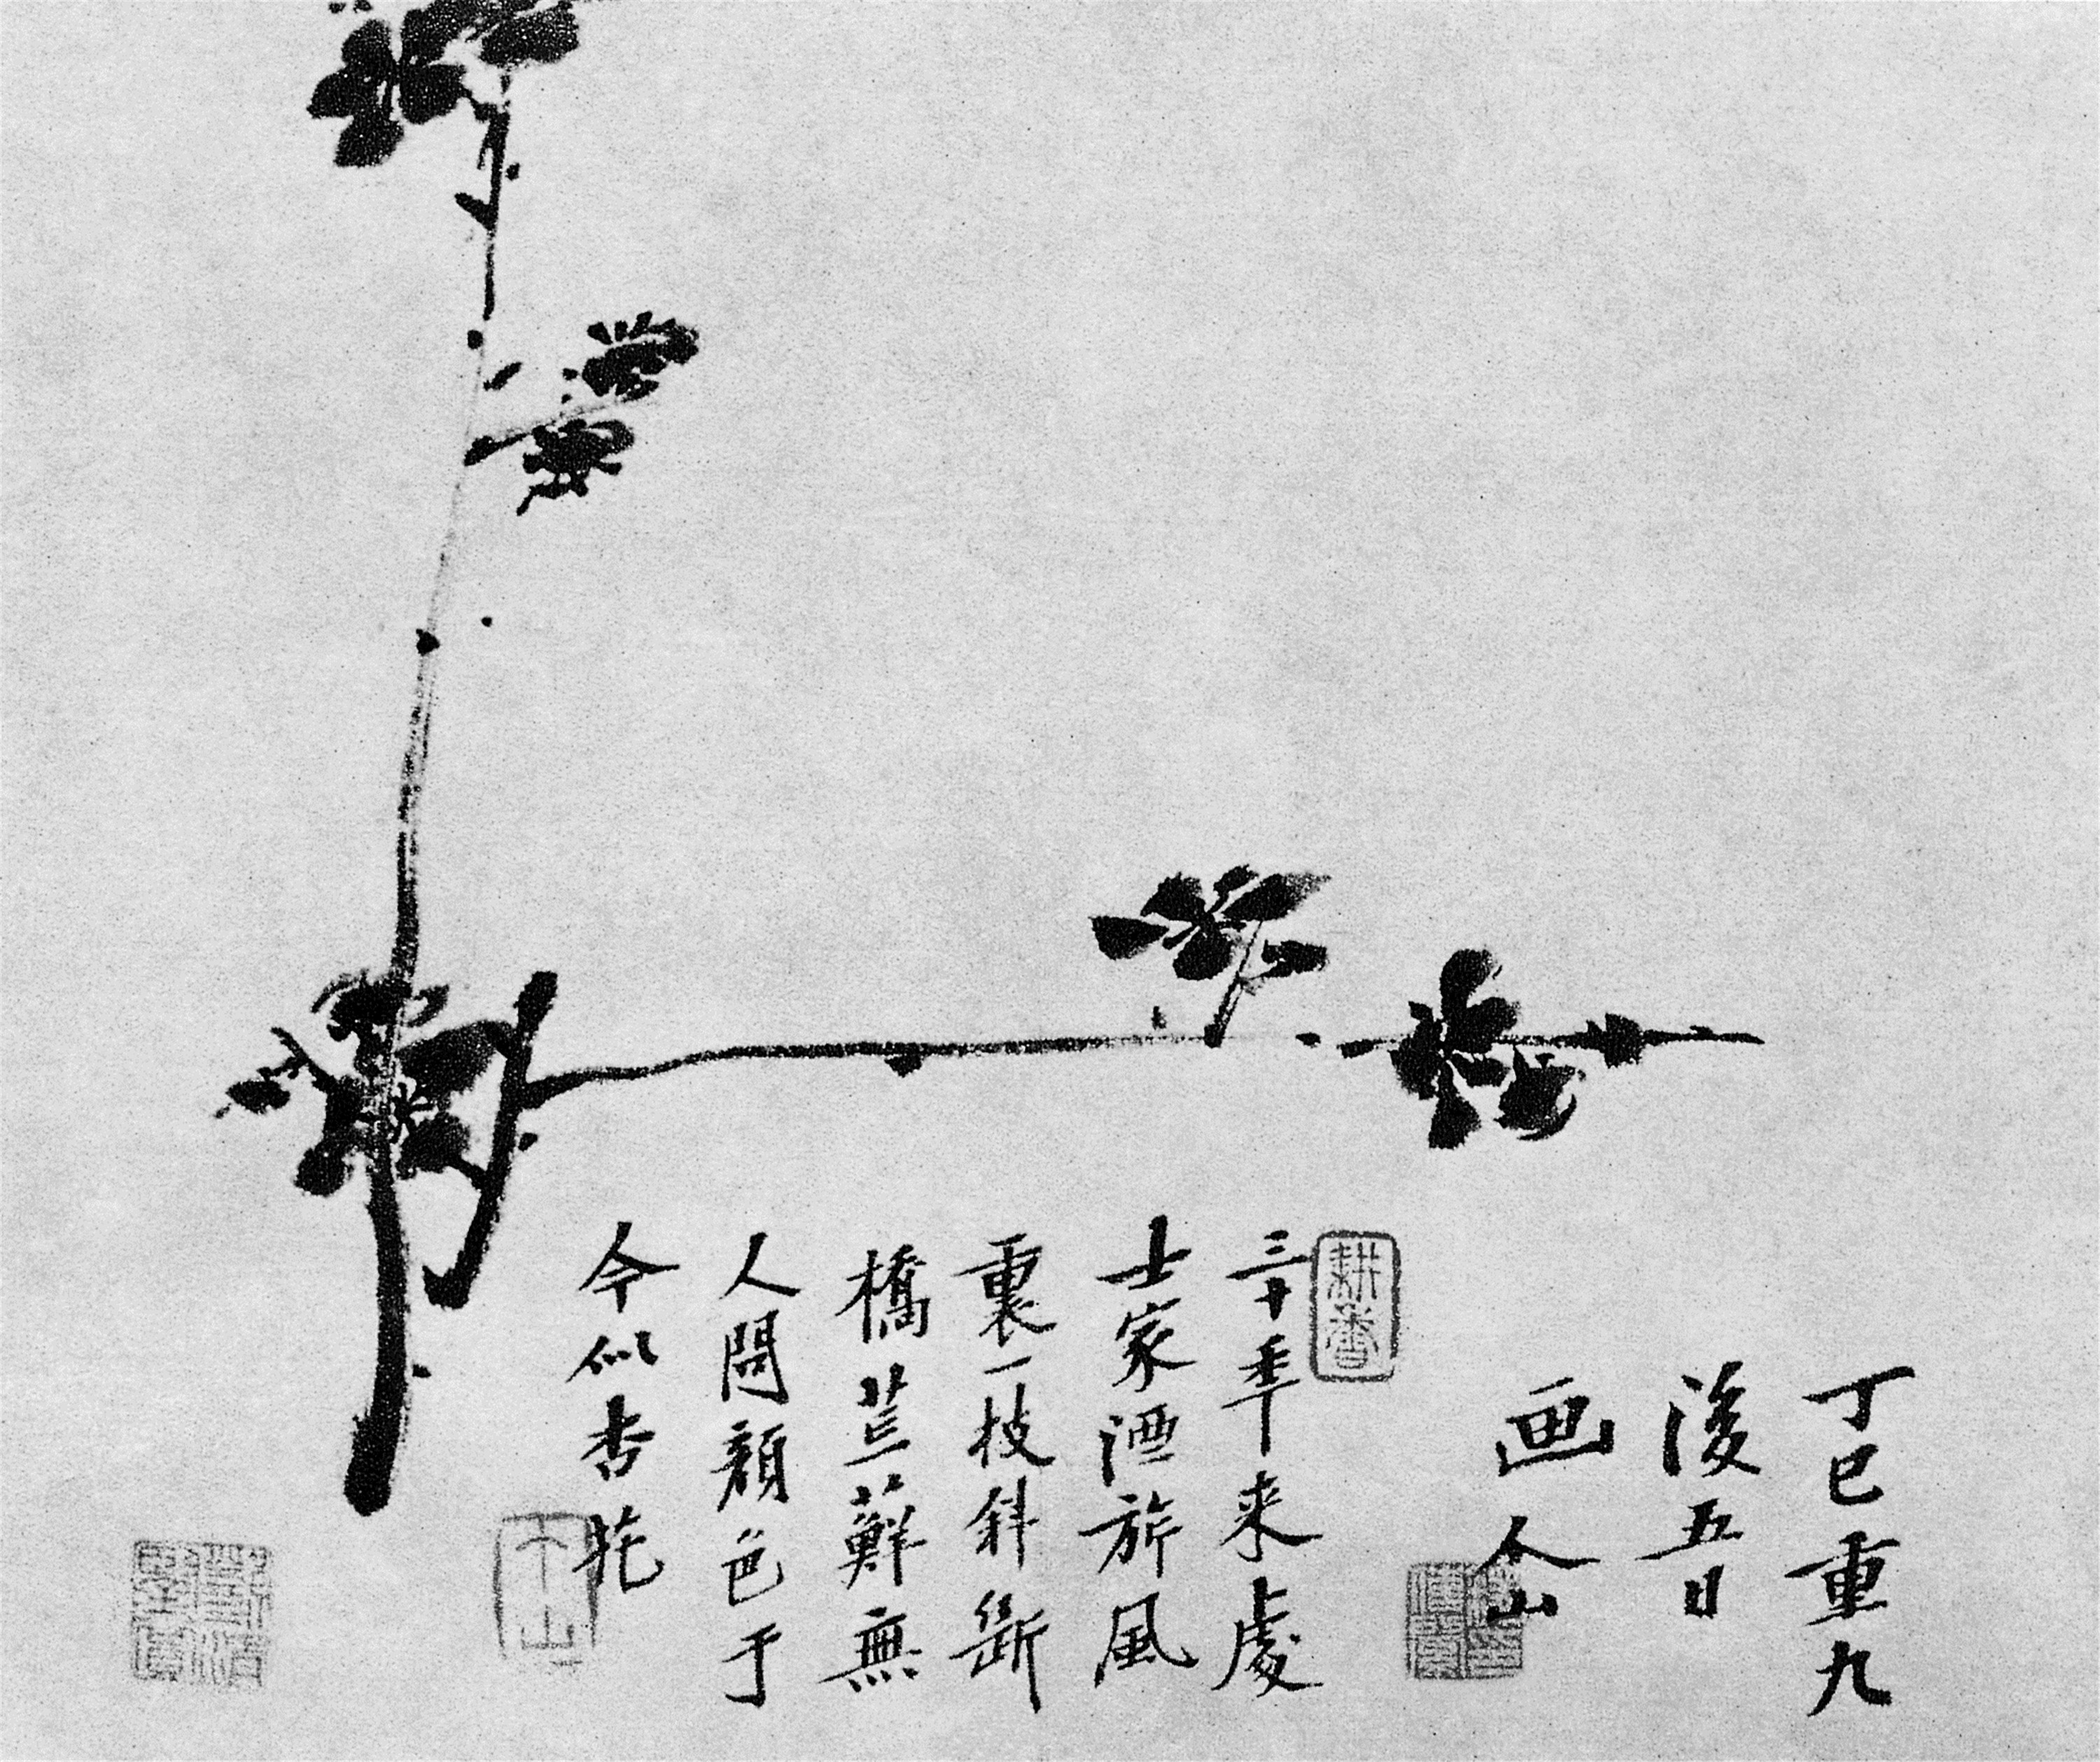 丁巳重九
後五日
画 个山
耕香
三十年来處
士家酒旂風
裏一枝斜斷
橋荒蘚無
人問顏色于
今似杏花
个山